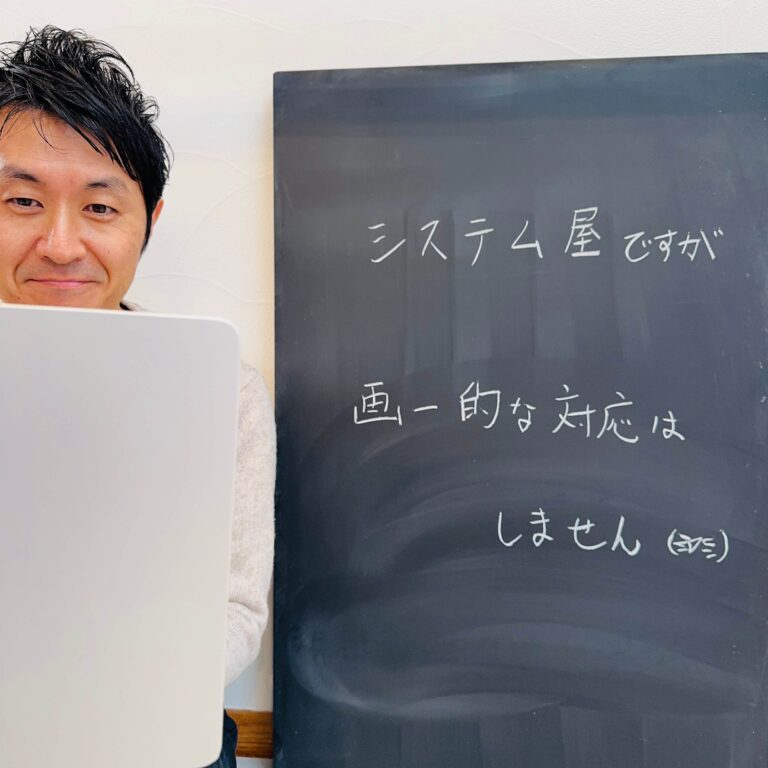 システム屋ですが
画一的な対応は
しません